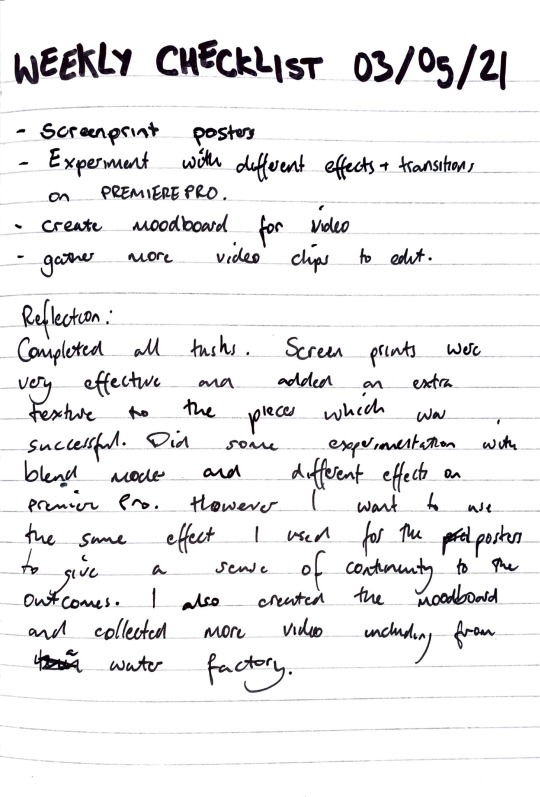 WEEKLY CHECKLIST 03/05/21
- Screenprint posters
- Experiment with different effects + transitions
on PREMIERE PRO.
- create moodboard for video
- gather more video clips to edit.
Reflection:
Completed all tasks. Screen prints were
very effective and added an extra
texture to the pieces which was
successful. Did some experimentation with
blend modes and different effects on
premier Pro. However I want to use
the same effect I used for the posters
to give a sense of continunty to the
outcomes. I also created the moodboard
and collected more video including from
a water factory.